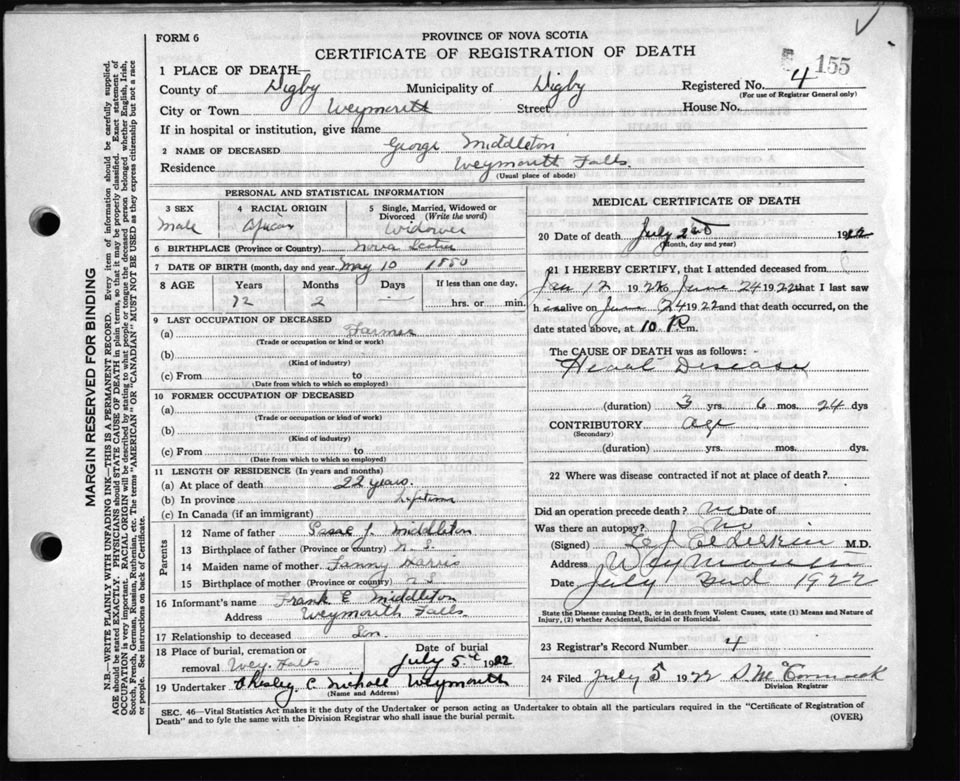 FORM 6
PROVINCE OF NOVA SCOTIA
CERTIFICATE OF REGISTRATION OF DEATH
155
1 PLACE OF DEATH—
County of Digby Municipality of Digby Registered No. 4
(For use of Registrar General only)
City or Town Weymouth Street House No.
If in hospital or institution, give name
2 NAME OF DECEASED George Middleton
Residence Weymouth Falls
(Usual place of abode)
PERSONAL AND STATISTICAL INFORMATION
3 SEX
Male
4 RACIAL ORIGIN
African
5 Single, Married, Widowed or Divorced (Write the word)
Widower
6 BIRTHPLACE (Province or Country) Nova Scotia
7 DATE OF BIRTH (month, day and year) May 10 1850
8 AGE Years Months Days If less than one day,
72 2 — hrs. or min.
9 LAST OCCUPATION OF DECEASED
(a) Farmer
(Trade or occupation or kind or work)
(b)
(Kind of industry)
(c) From to
(Date from which to which so employed)
10 FORMER OCCUPATION OF DECEASED
(a)
(Trade or occupation or kind of work)
(b)
(Kind of industry)
(c) From to
(Date from which to which so employed)
11 LENGTH OF RESIDENCE (In years and months)
(a) At place of death 22 years.
(b) In province Lifetime
(c) In Canada (if an immigrant)
Parents
12 Name of father Isaac J. Middleton
13 Birthplace of father (Province or country) N. S.
14 Maiden name of mother Fanny Harris
15 Birthplace of mother (Province or country) N S
16 Informant's name Frank E Middleton
Address Weymouth Falls
17 Relationship to deceased Son
18 Place of burial, cremation or removal Wey. Falls
Date of burial
July 5th 1922
19 Undertaker C. Weymouth
(Name and Address)
MEDICAL CERTIFICATE OF DEATH
20 Date of death July 2nd 1922
(Month, day and year)
21 I HEREBY CERTIFY, that I attended deceased from
Jan 12 1922 to June 24 1922 that I last saw
h im alive on June 24 1922 and that death occurred, on the
date stated above, at 10 P. m.
The CAUSE OF DEATH was as follows:
Heart Disease
(duration) 3 yrs. 6 mos. 24 dys
CONTRIBUTORY Age
(Secondary)
(duration) yrs. mos. dys.
22 Where was disease contracted if not at place of death?
Did an operation precede death? No Date of
Was there an autopsy? No
(Signed) Elderkin M.D.
Address Weymouth
Date July 2nd 1922
State the Disease causing Death, or in Death from Violent Causes, state (1) Means and Nature of Injury, (2) whether Accidental, Suicidal or Homicidal.
23 Registrar's Record Number 4
24 Filed July 5 1922 D McCormack
Division Registrar
SEC. 46—Vital Statistics Act makes it the duty of the Undertaker or person acting as Undertaker to obtain all the particulars required in the "Certificate of Registration of
Death" and to fyle the same with the Division Registrar who shall issue the burial permit. (OVER)
MARGIN RESERVED FOR BINDING
N.B.—WRITE PLAINLY WITH UNFADING INK—THIS IS A PERMANENT RECORD. Every item of information should be carefully supplied.
AGE should be stated EXACTLY. PHYSICIANS should STATE CAUSE OF DEATH in plain terms, so that it may be properly classified. Exact statement of
OCCUPATION is very important. RACIAL ORIGIN will be described by stating to what people or tongue the deceased person belonged whether English, Irish,
Scotch, French, German, Russian, Ruthenian, etc. The terms "AMERICAN" OR "CANADIAN" MUST NOT BE USED as they express citizenship but not a race
or people. See instructions on back of Certificate.